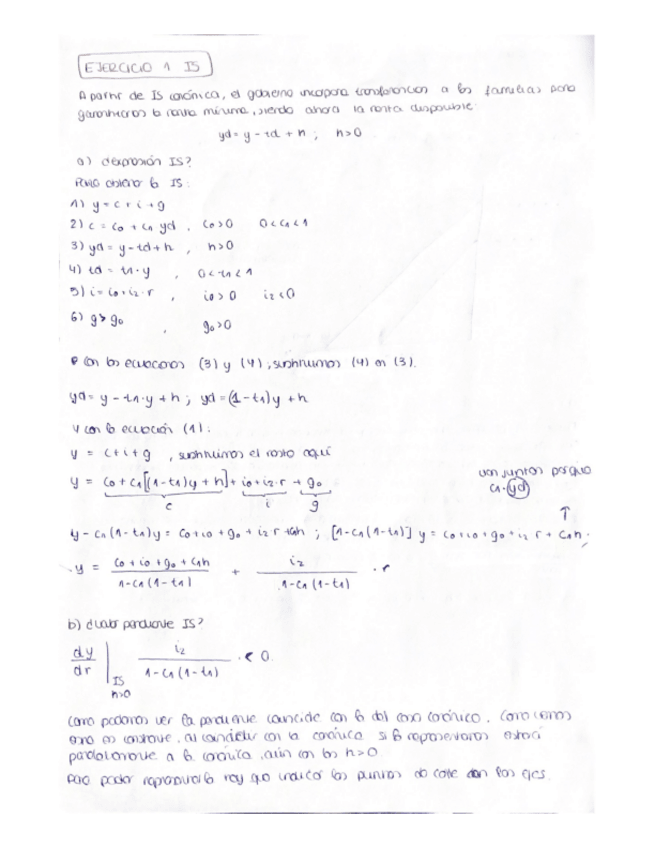 EJERCICIO 1 IS
A partir de IS canónica, el gobierno incorpora transferencias a las familias para
garantizarles la renta mínima, siendo ahora la renta disponible:
yd = y - td + h ; h>0
a) ¿expresión IS?
Para obtener la IS:
1) y = c + i + g
2) c = c0 + c1 yd , c0>0 0<c1<1
3) yd = y - td + h , h>0
4) td = t1·y , 0<t1<1
5) i = i0 + i2·r , i0>0 i2<0
6) g > g0 , g0>0
Con las ecuaciones (3) y (4), sustituimos (4) en (3).
yd = y - t1·y + h ; yd = (1-t1)y + h
Y con la ecuación (1):
y = c+i+g , sustituimos el resto aquí
y = c0 + c1[(1-t1)y + h] + i0 + i2·r + g0
c i g
van juntos porque
c1·(yd)
↑
y - c1(1-t1)y = c0 + i0 + g0 + i2 r + c1h ; [1-c1(1-t1)] y = c0 + i0 + g0 + i2 r + c1h.
y = c0 + i0 + g0 + c1h / 1-c1(1-t1) + i2 / 1-c1(1-t1) · r
b) ¿valor pendiente IS?
dy/dr | IS h>0 i2 / 1-c1(1-t1) < 0.
Como podemos ver la pendiente coincide con la del caso canónico. Como vemos
esta es constante, al coincidir con la canónica si la representamos estará
paralelamente a la canónica, aún con los h>0
Para poder representarla hay que indicar los puntos de corte con los ejes.